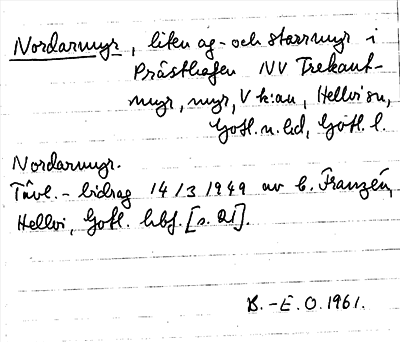 Nordarmyr, liten ag- och starrmyr i
Prästhagen NV Trekant-
myr, myr, V k:an, Hellvi sn,
Gotl. n. hd, Gotl. l.
Nordarmyr.
Tävl.-bidrag 14/3 1949 av C. Franzén,
Hellvi, Gotl. hbf. [s. 21].
B.-E. O. 1961.